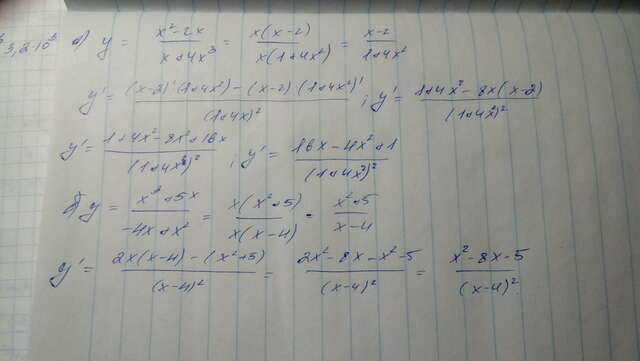 3,2·10³ а) y = (x²-2x)/(x+4x³) = x(x-2)/x(1+4x²) = (x-2)/(1+4x²)
y' = ((x-2)'(1+4x²)-(x-2)(1+4x²)')/(1+4x)² ; y' = (1+4x²-8x(x-2))/(1+4x²)²
y' = (1+4x²-8x²+16x)/(1+4x²)² ; y' = (16x-4x²+1)/(1+4x²)²
б) y = (x³+5x)/(-4x+x²) = x(x²+5)/x(x-4) = (x²+5)/(x-4)
y' = (2x(x-4)-(x²+5))/(x-4)² = (2x²-8x-x²-5)/(x-4)² = (x²-8x-5)/(x-4)²